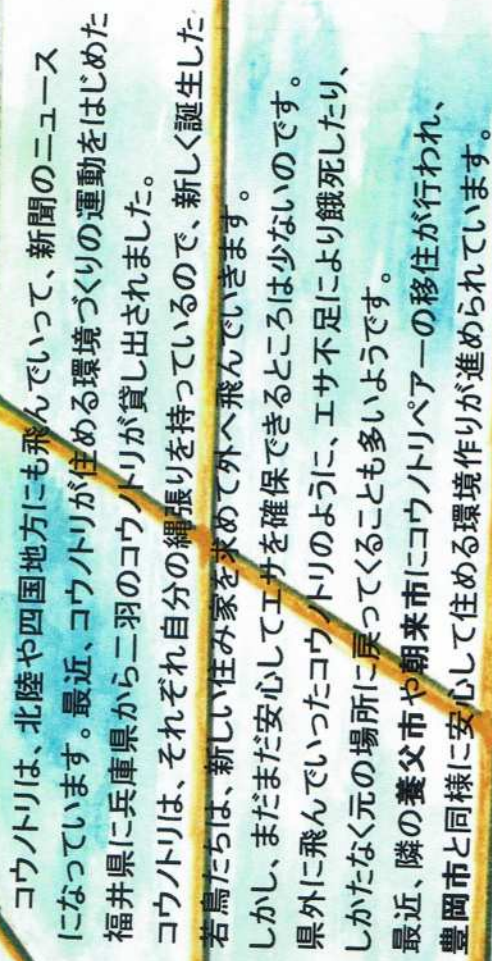 コウノトリは、北陸や四国地方にも飛んでいって、新聞のニュース
になっています。最近、コウノトリが住める環境づくりの運動をはじめた
福井県に兵庫県から二羽のコウノトリが貸し出されました。
コウノトリは、それぞれ自分の縄張りを持っているので、新しく誕生した
若鳥たちは、新しい住み家を求めて外へ飛んでいきます。
しかし、まだまだ安心してエサを確保できるところは少ないのです。
県外に飛んでいったコウノトリのように、エサ不足により餓死したり、
しかたなく元の場所に戻ってくることも多いようです。
最近、隣の養父市や朝来市にコウノトリペアーの移住が行われ、
豊岡市と同様に安心して住める環境作りが進められています。